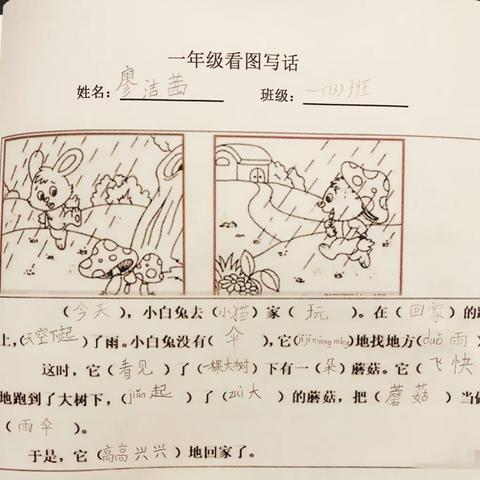 一年级看图写话
姓名：廖洁茜 班级：一(13)班
（今天），小白兔去（小猫）家（玩）。在（回家）的
上，（天空下起）了雨。小白兔没有（伞），它（jíjímángmáng）地找地方（duǒ雨）
这时，它（看见）了（一棵大树）下有一（朵）蘑菇。它（飞快
地跑到了大树下，（jiǎn起）了（zuì大）的蘑菇，把（蘑菇）当
（雨伞）。
于是，它（高高兴兴）地回家了。